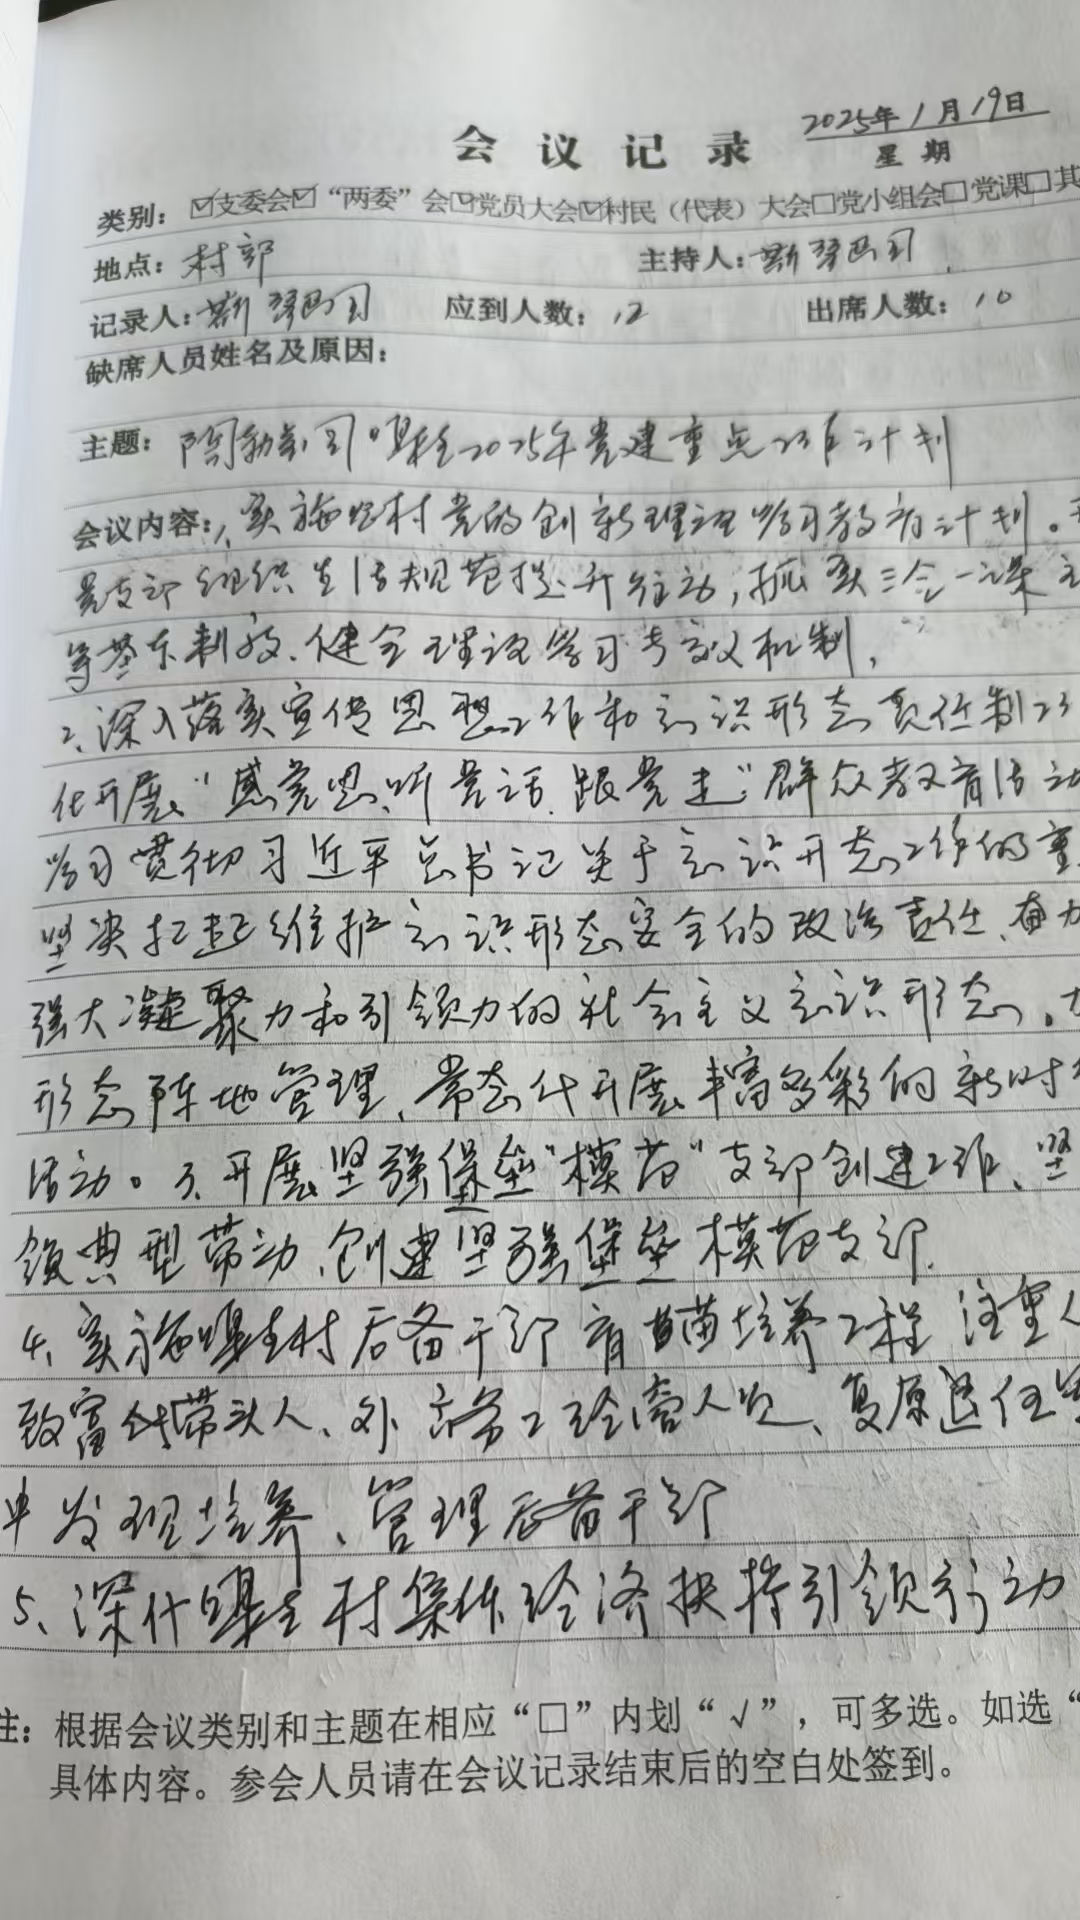 2025年1月19日
会议记录
星期
类别：☑支委会☑“两委”会☑党员大会☑村民（代表）大会□党小组会□党课□其
地点：村部 主持人：斯琴巴图
记录人：斯琴巴图 应到人数：12 出席人数：10
缺席人员姓名及原因：
主题：陶勒 2025年党建重点工作计划
会议内容：1、实施 村党的创新理论学习教育计划。
党支部组织生活规范提升行动，抓实三会一课
等基本制度、健全理论学习考 机制，
2、深入落实宣传思想工作和意识形态责任制
化开展“感党恩、听党话、跟党走”群众教育活动
学习贯彻习近平总书记关于意识形态工作的重
坚决扛起维护意识形态安全的政治责任、奋力
强大凝聚力和引领力的社会主义意识形态。
形态阵地管理、常态化开展丰富多彩的新时
活动。3、开展坚强堡垒“模范”支部创建工作、坚
领典型带动、创建坚强堡垒模范支部.
4、实施 村后备干部育苗培养工程 注重
致富 带头人、外 务工经商人员、复原退伍
中发现培养、管理后备干部
5、深化 村集体经济扶持引领行动
注：根据会议类别和主题在相应“□”内划“√”，可多选。如选“
具体内容。参会人员请在会议记录结束后的空白处签到。